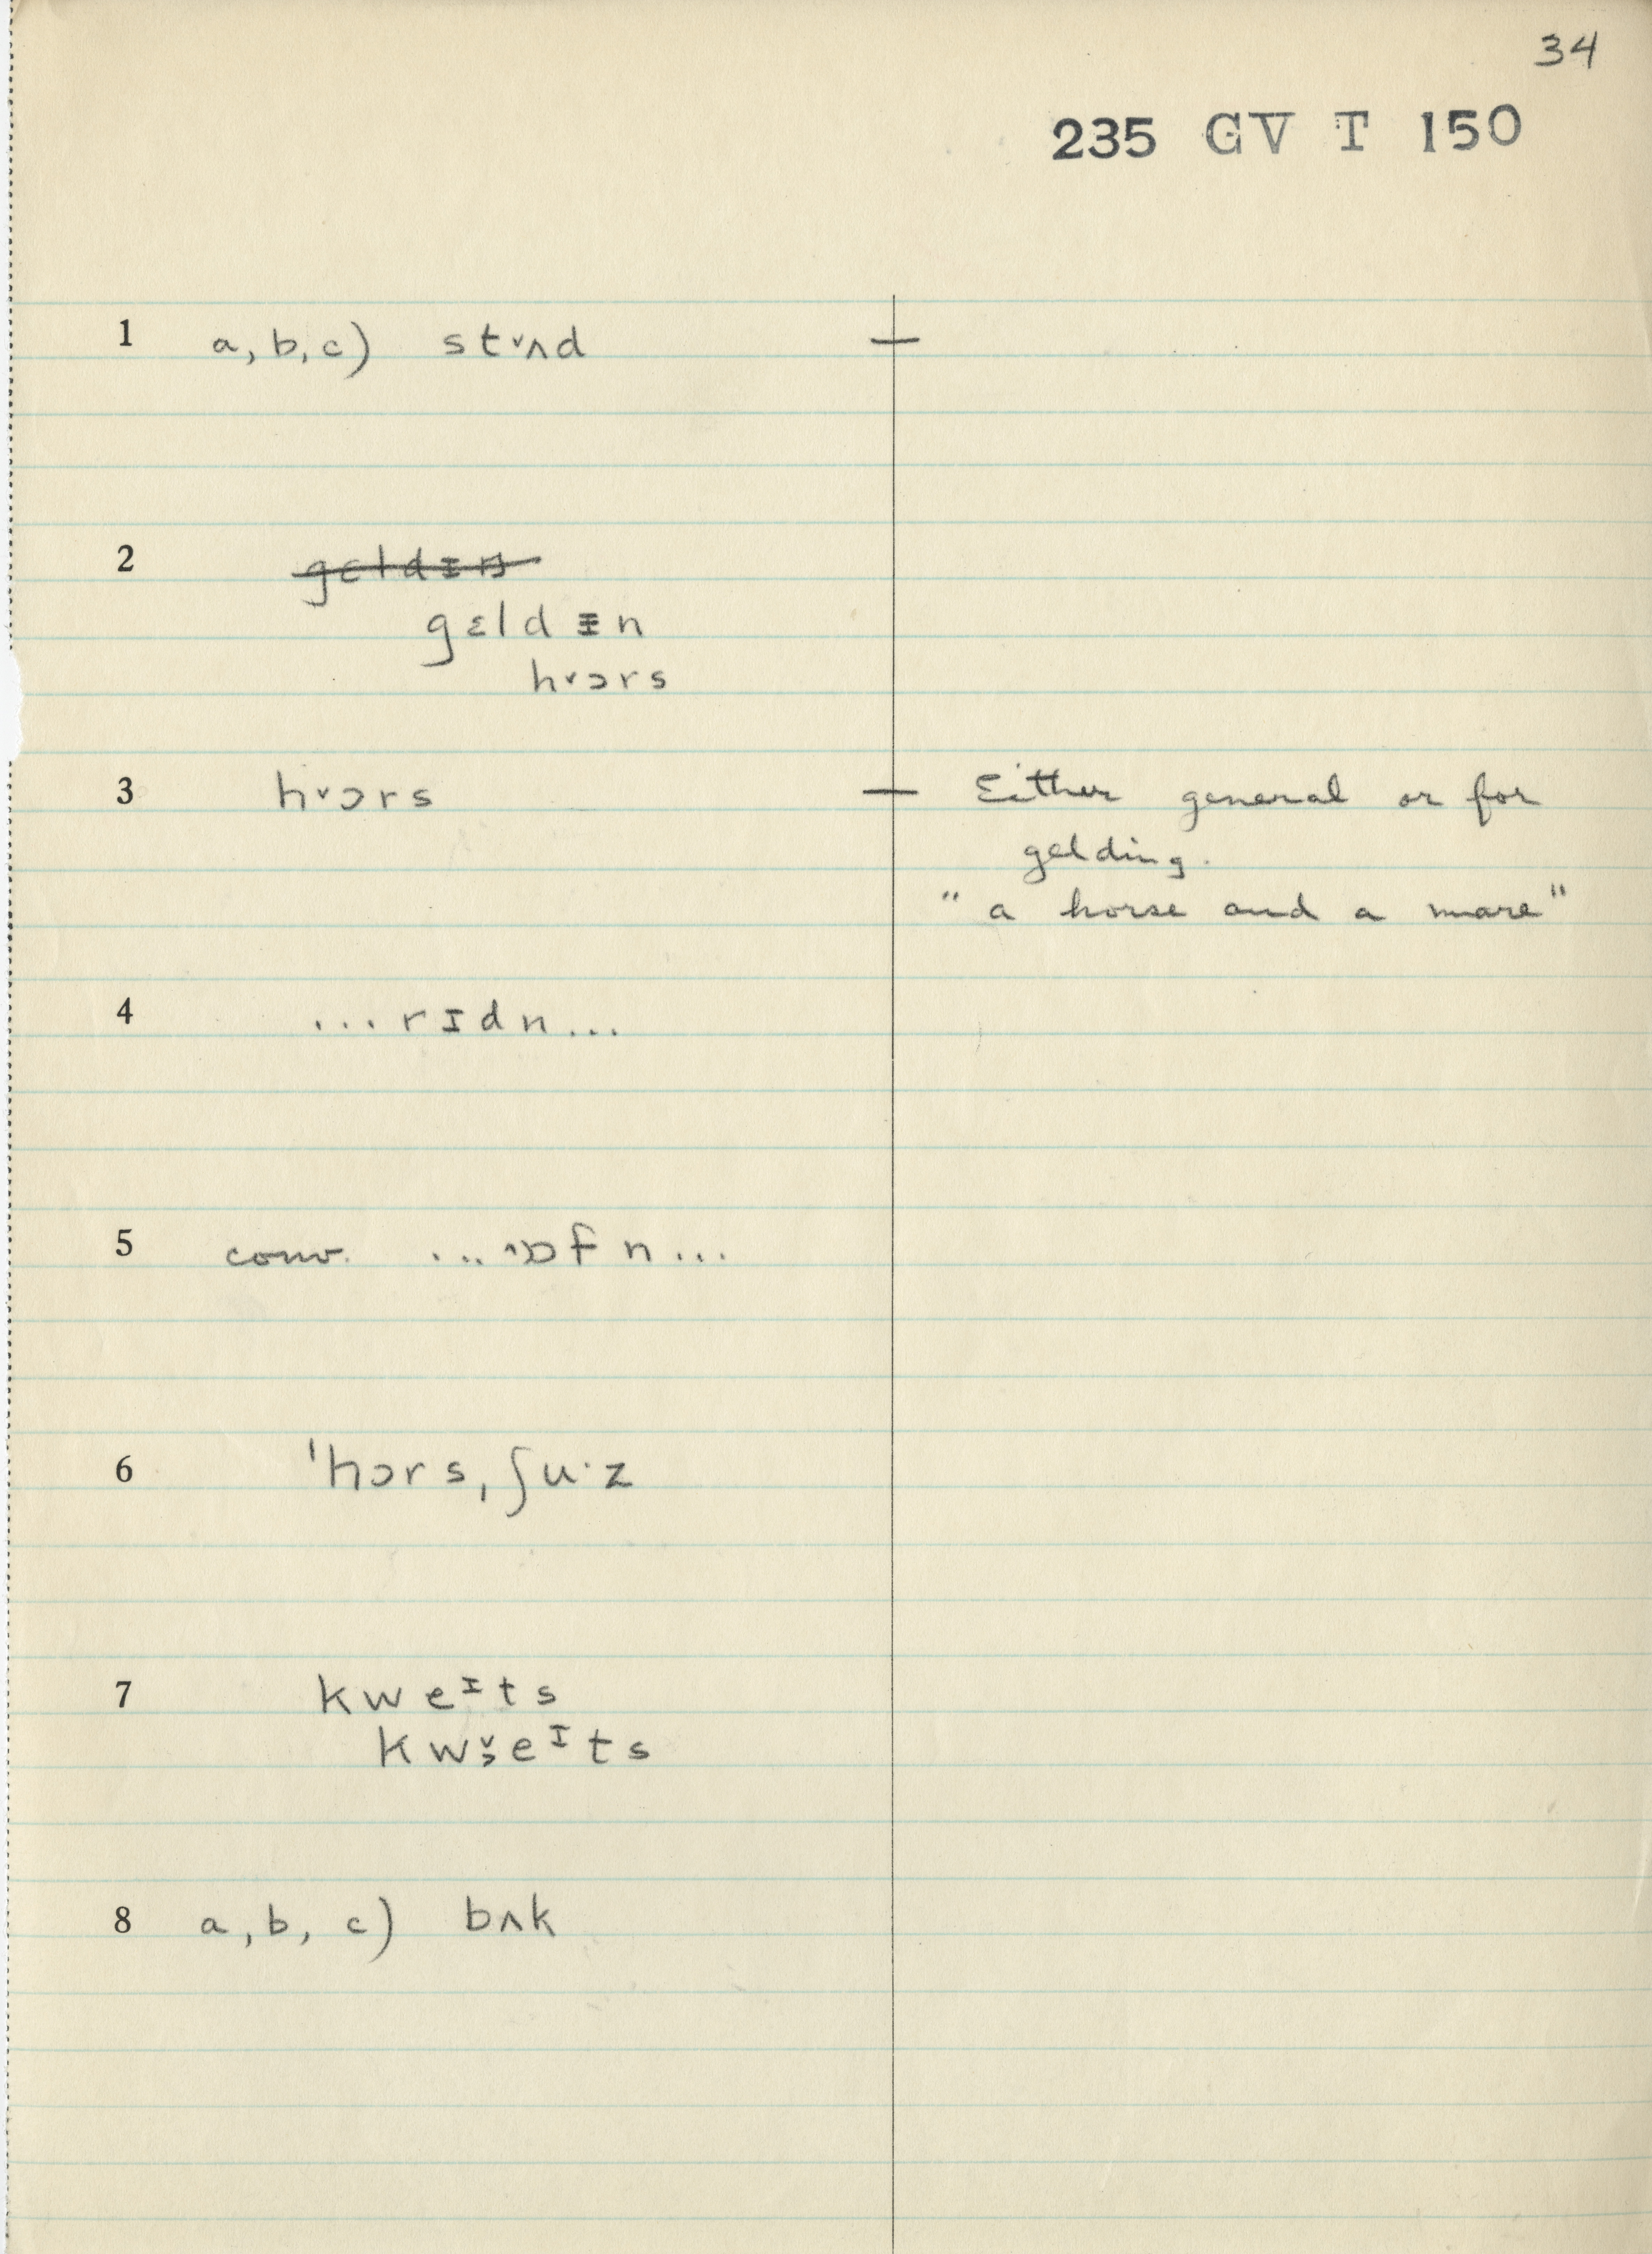 34
235 GV T 150
1 a, b, c) st˅ʌd —
2 ~~gɛldɪŋ~~
gɛldᵻn
h˅ɔrs
3 h˅ɔrs — Either general or for
gelding.
" a horse and a mare "
4 ... rɪdn ...
5 conv. ... ˄ɒf n ...
6 ˈhɔrsˌʃu·z
7 kweᶦts
kw˅̹eᶦts
8 a, b, c) bʌk